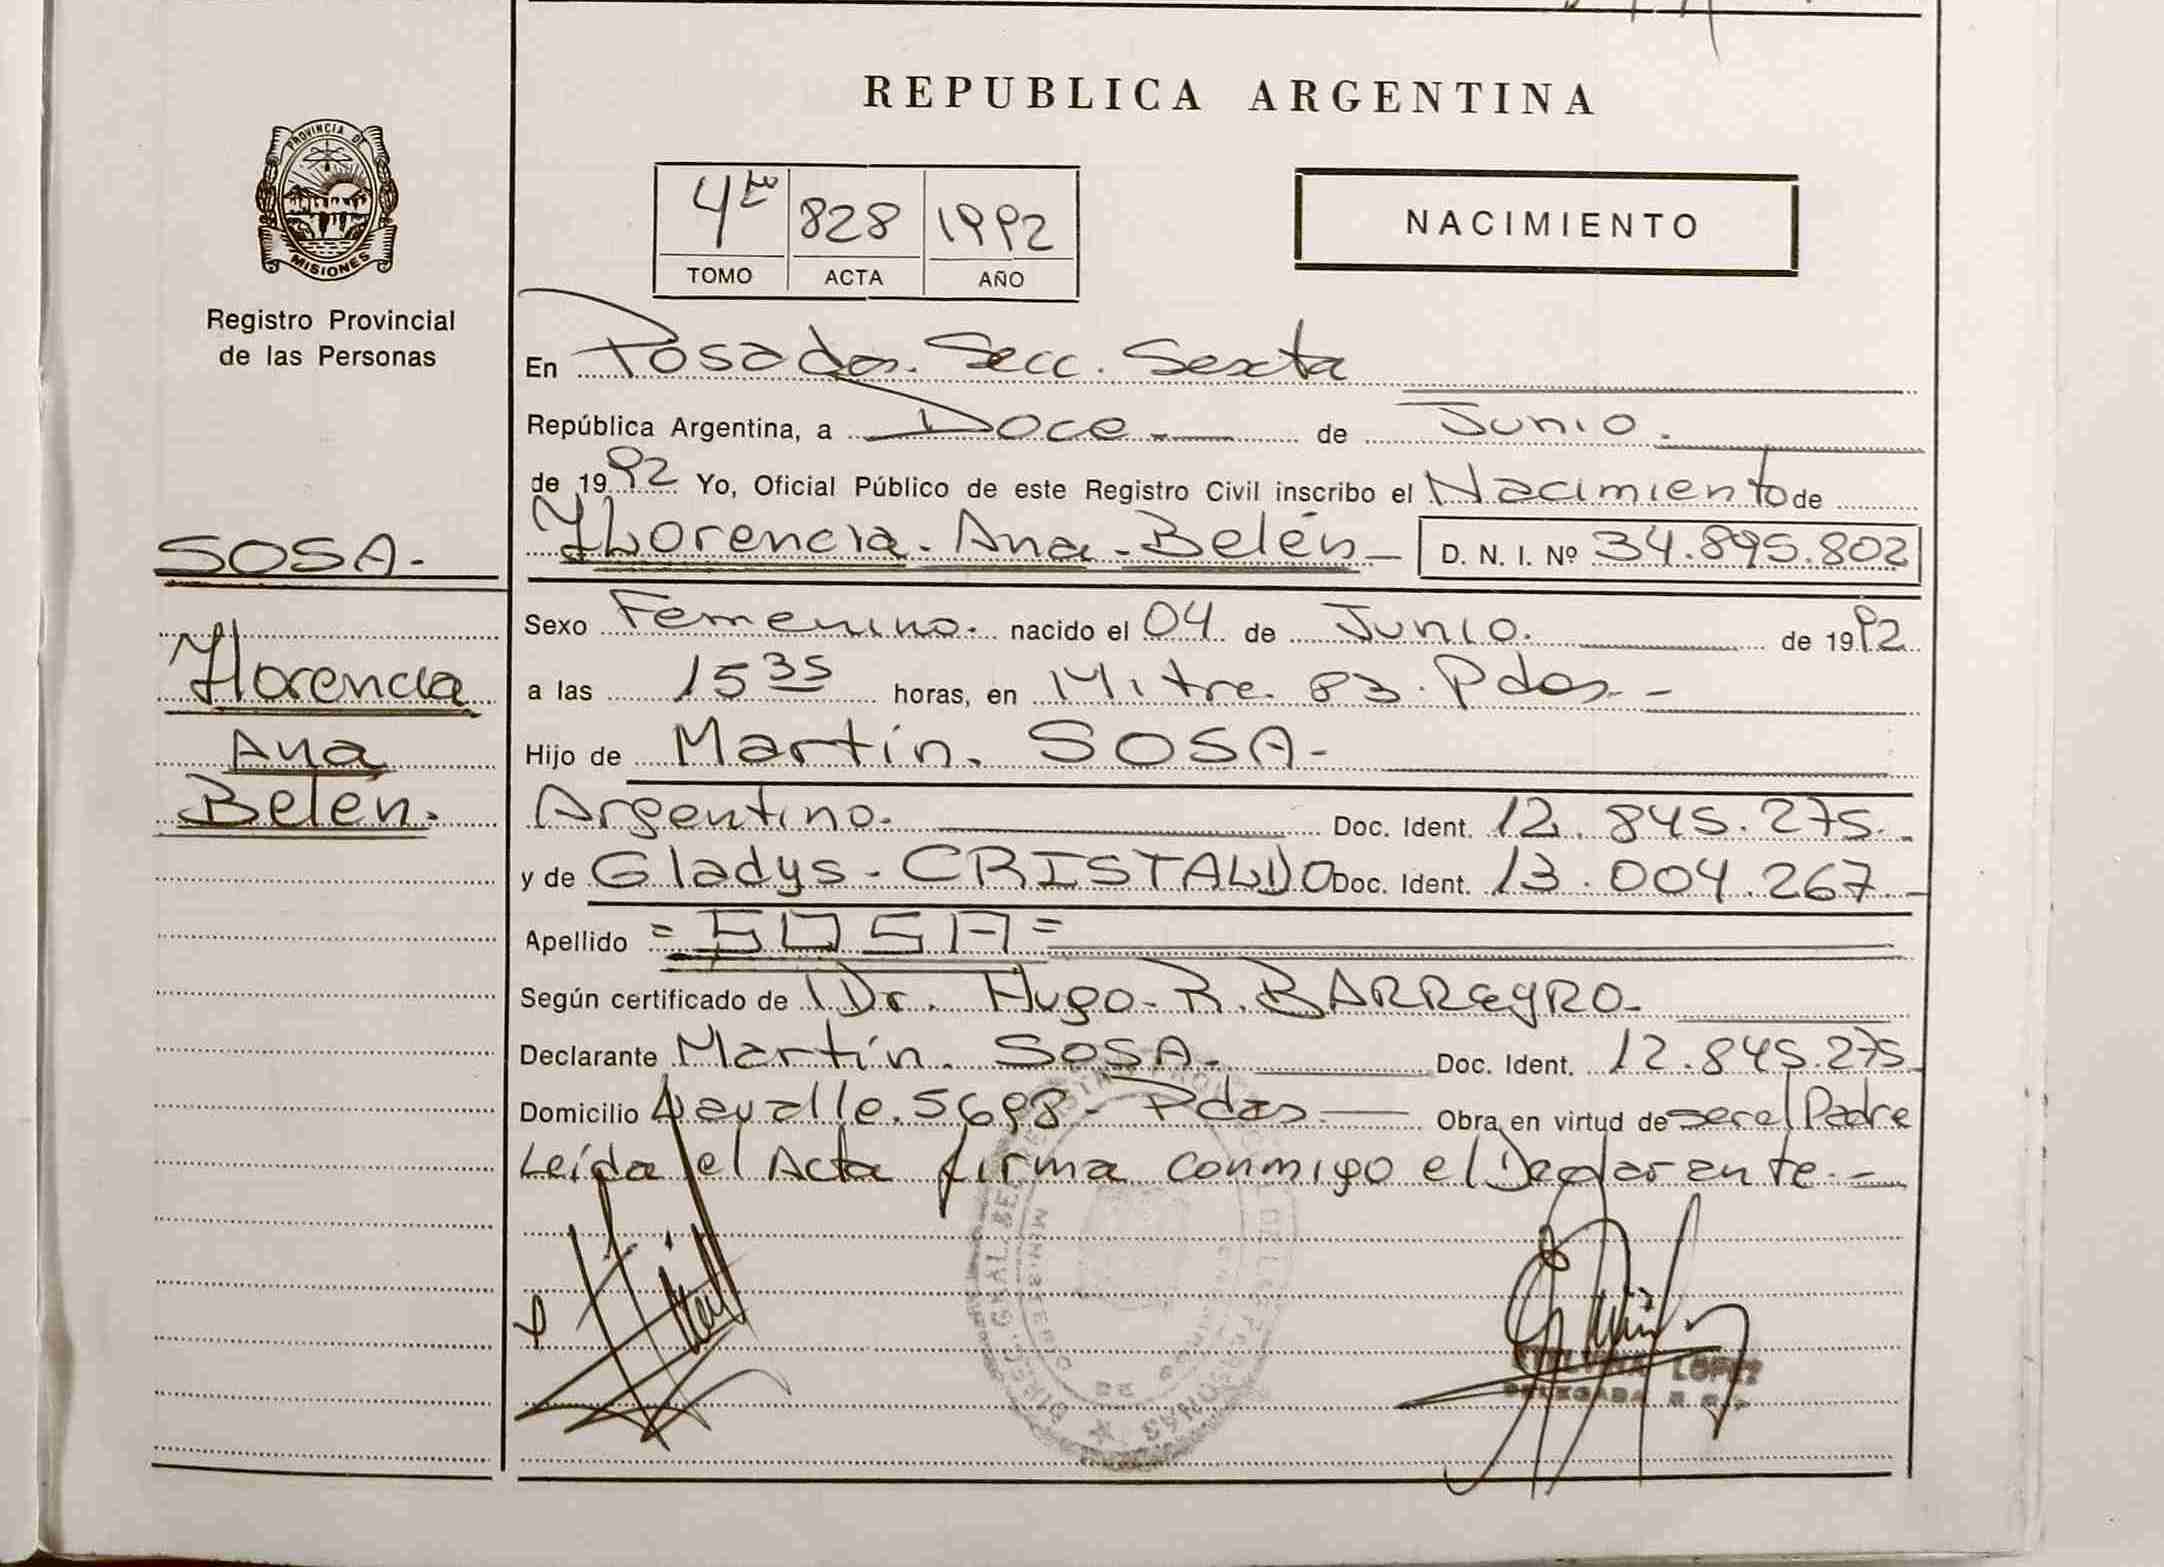 REPUBLICA ARGENTINA
PROVINCIA DE
MISIONES
Registro Provincial
de las Personas
4to 828 1992
TOMO ACTA AÑO
NACIMIENTO
En Posadas. Secc. Sexta
República Argentina, a Doce de Junio.
de 1992 Yo, Oficial Público de este Registro Civil inscribo el Nacimiento de
Florencia. Ana - Belén D. N. I. Nº 34.895.802
SOSA.
Florencia
Ana
Belén.
Sexo Femenino. nacido el 04 de Junio. de 1992
a las 15 35 horas, en Mitre. 83. Pdas.
Hijo de Martín. SOSA-
Argentino. Doc. Ident. 12.845.275.
y de Gladys - CRISTALDO Doc. Ident. 13.004.267.
Apellido = SOSA =
Según certificado de Dr. Hugo. R. BARREyRO.
Declarante Martín. SOSA. Doc. Ident. 12.845.275
Domicilio Lavalle. 5698 - Pdas Obra en virtud de ser el Padre
Leída el Acta firma conmigo el Declarante.-
MINISTERIO
LOPEZ
DELEGADA